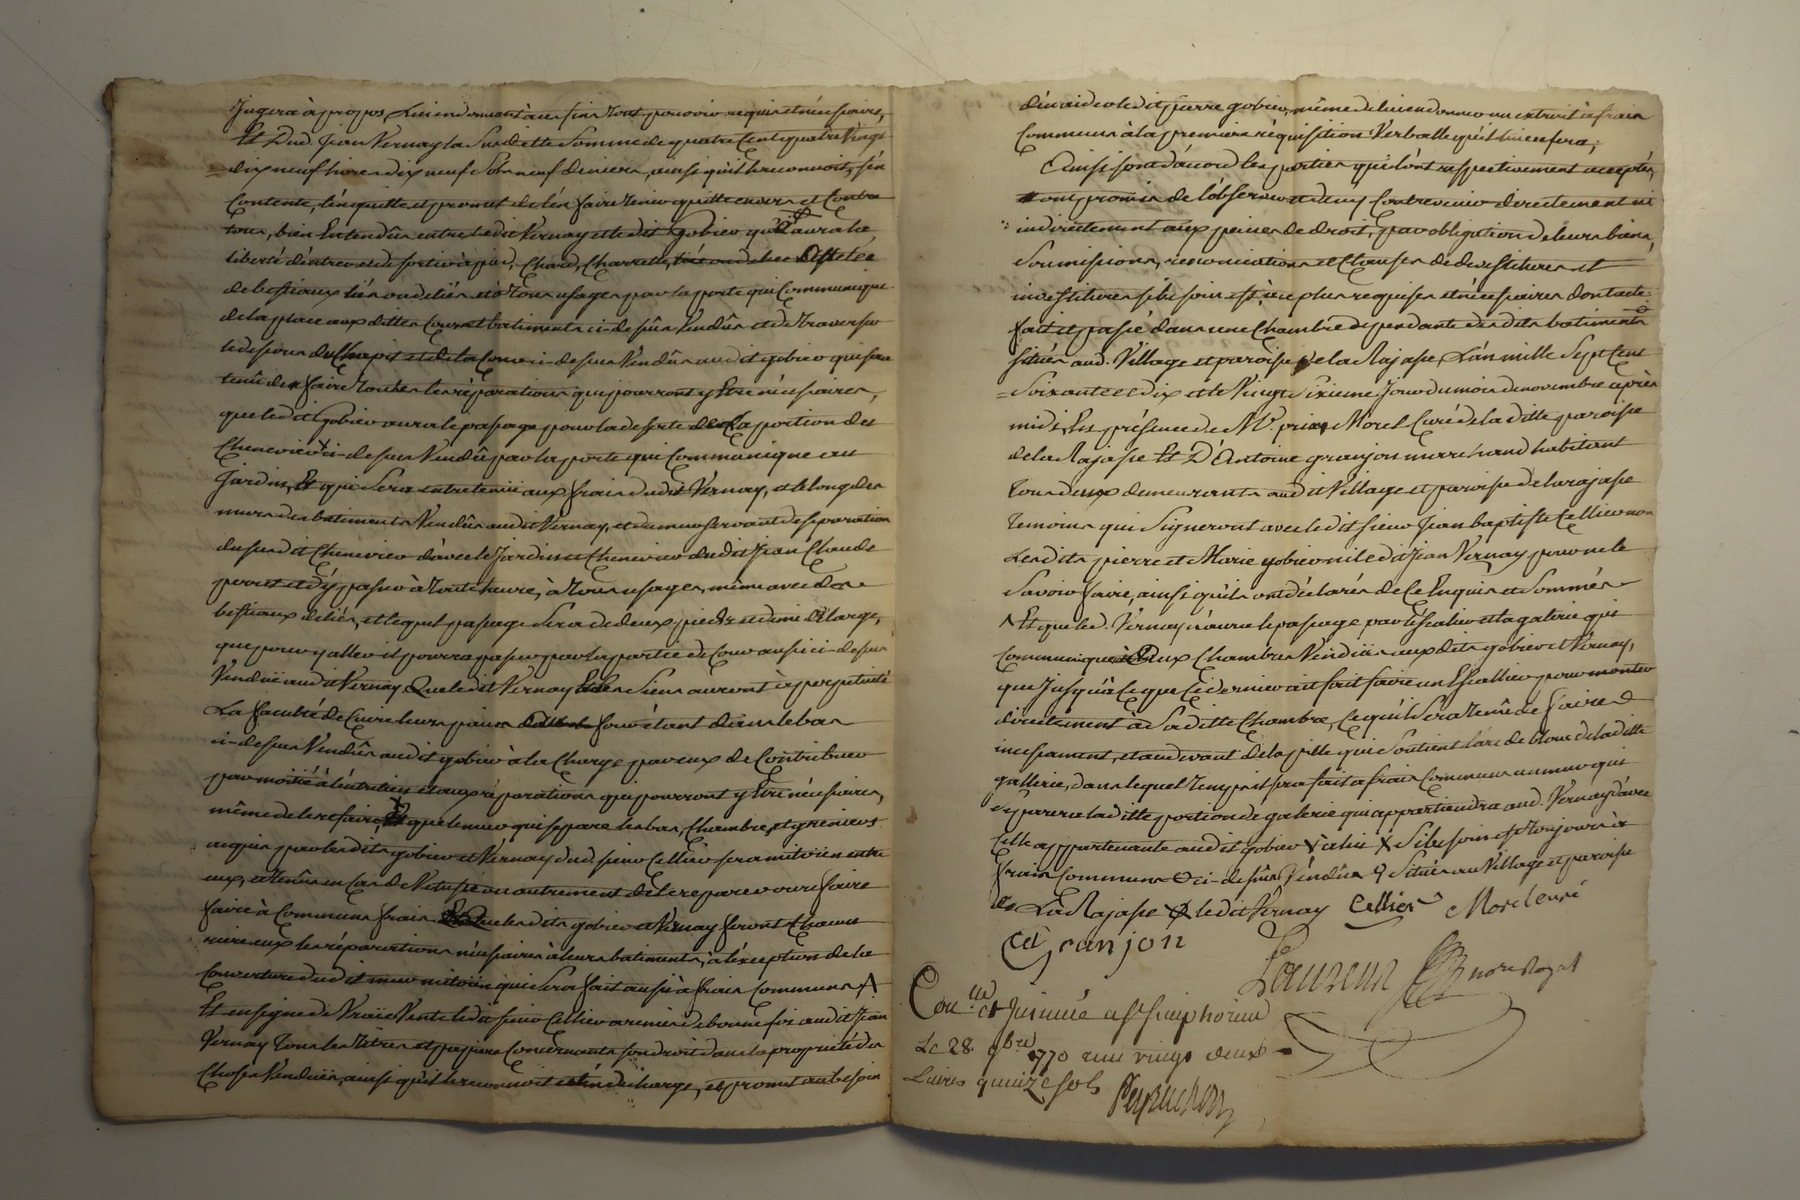 Jugera à propos, Lui en donnant à ces fins tout pouvoir requis et nécessaire,
Et Dud. Jean Vernay la Susditte Somme de quatre Cent quatre Vingt
dix neuf livres dix neuf Sols neuf deniers, ainsi qu'il le reconnoit, s'en
Contente, l'en quitte et promet de l'en faire tenir quitte envers et Contre
tous, bien Entendû entre ledit Vernay et ledit gobier qu'il aura la
liberté d'entrer et de sortir à pied, Chard, Charrette, attelée
de bestiaux liés ou deliés et à tous usages par la porte qui Communique
de la place aux dittes Cour et batiments ci-dessûs Vendûs et de traverser
le dessous du Chapit et de la Cour ci-dessus Vendûs audit gobier qui sera
tenû de faire toutes les réparations qui pourront y Etre nécessaires,
que ledit gobier aura le passage pour la desserte de la portion des
Chenevier ci-dessus Vendû par la porte qui Communique au
Jardin, Et qui Sera entretenüe aux frais dudit Vernay, et le long des
murs des batiments Vendûs audit Vernay, et du mur servant de séparation
du susdit Chenevier d'avec le Jardin et Chenevier dudit Jean Claude
perret et d'y passer à toute heure, à tous usages, même avec des
bestiaux deliés, et lequel passage Sera de deux pieds et demi de large,
que pour y aller il pourra passer par la partie de Cour aussi ci-dessus
Vendüe audit Vernay. Que ledit Vernay Et les Siens auront à perpetuité
La faculté de Cuire leurs pains four étant dans le bas
ci-dessus Vendûs audit gobier à la Charge par eux de Contribuer
par moitié à l'entretien et aux réparations qui pourront y Etre nécessaires,
même de le refaire, Et que le mur qui sépare les bas, Chambre et greniers
aquis par lesdits gobier et Vernay dud. sieur Cellier sera mitoïen entre
eux, et tenûs en Cas de Vetusté ou autrement de le reparer ou refaire
faire à Communs frais. Que lesdits gobier et Vernay feront Chacun
rière eux les réparations nécessaires à leurs batiments, à l'éxception de la
Couverture dudit mur mitoïen qui Sera fait aussi à frais Communs A
Et en signe de Vraïe Vente ledit sieur Cellier a remis de bonne foi audit Jean
Vernay tous les titres et papiers Concernants son droit dans la proprieté des
Choses Vendües, ainsi qu'il le reconnoit et l'en décharge, et promet au besoin
d'en aider ledit pierre gobier, même de lui en donner un extrait à frais
Communs à la premiere réquisition Verballe qu'il lui en fera;
Ainsi sont d'acord les parties qui l'ont respectivement accepté,
ont promis de l'observer et de n'y Contrevenir directement ni
indirectement aux peines de droit, par obligation de leurs biens,
Soumissions, renonciations et Clauses de devestitures et
investitures si besoin est, à ce plus requises et nécessaires dont acte
fait et passé dans une Chambre dependante desdits batiments
situés aud. Village et paroisse de la Rajasse, L'an mille Sept Cent
Soixante et dix et le Vingt Sixieme Jour du mois de novembre après
midi, En présence de Mre. Morel Curé de laditte paroisse
de la Rajasse Et D'Antoine granjon marchand habitant
tous deux demeurants audit Village et paroisse de la rajasse
temoins qui Signeront avec ledit sieur Jean baptiste Cellier non
Lesdits pierre et Marie gobier ni ledit Jean Vernay pour ne le
Savoir faire, ainsi qu'ils ont déclarés de ce Enquis et Sommés
A Et que led. Vernay n'aura le passage par l'Escalier et la galerie qui
Communique à Deux Chambres Vendües aux dits gobier et Vernay,
que Jusqu'à ce que ce dernier ait fait faire un Escallier pour monter
directement à Saditte Chambre, Ce qu'il Sera tenû de faire
incessament, et au devant de la pille qui Soutient l'arc de bloue de laditte
gallerie, dans lequel tems il sera fait à frais Communs un mur qui
separera laditte portion de galerie qui appartiendra aud. Vernay d'avec
Celle appartenante audit gobier X X Si besoin est toujours à
frais Communs ci-dessûs Vendûs Situés au Village et paroisse
de La Rajasse ledit Vernay Cellier Morel curé
Granjon
Laurens nore Royal
Conlle et Insinué a St Simphorien
Le 28. 9bre 1770 reçu vingt deux
Livres quinze sols Peyruchon